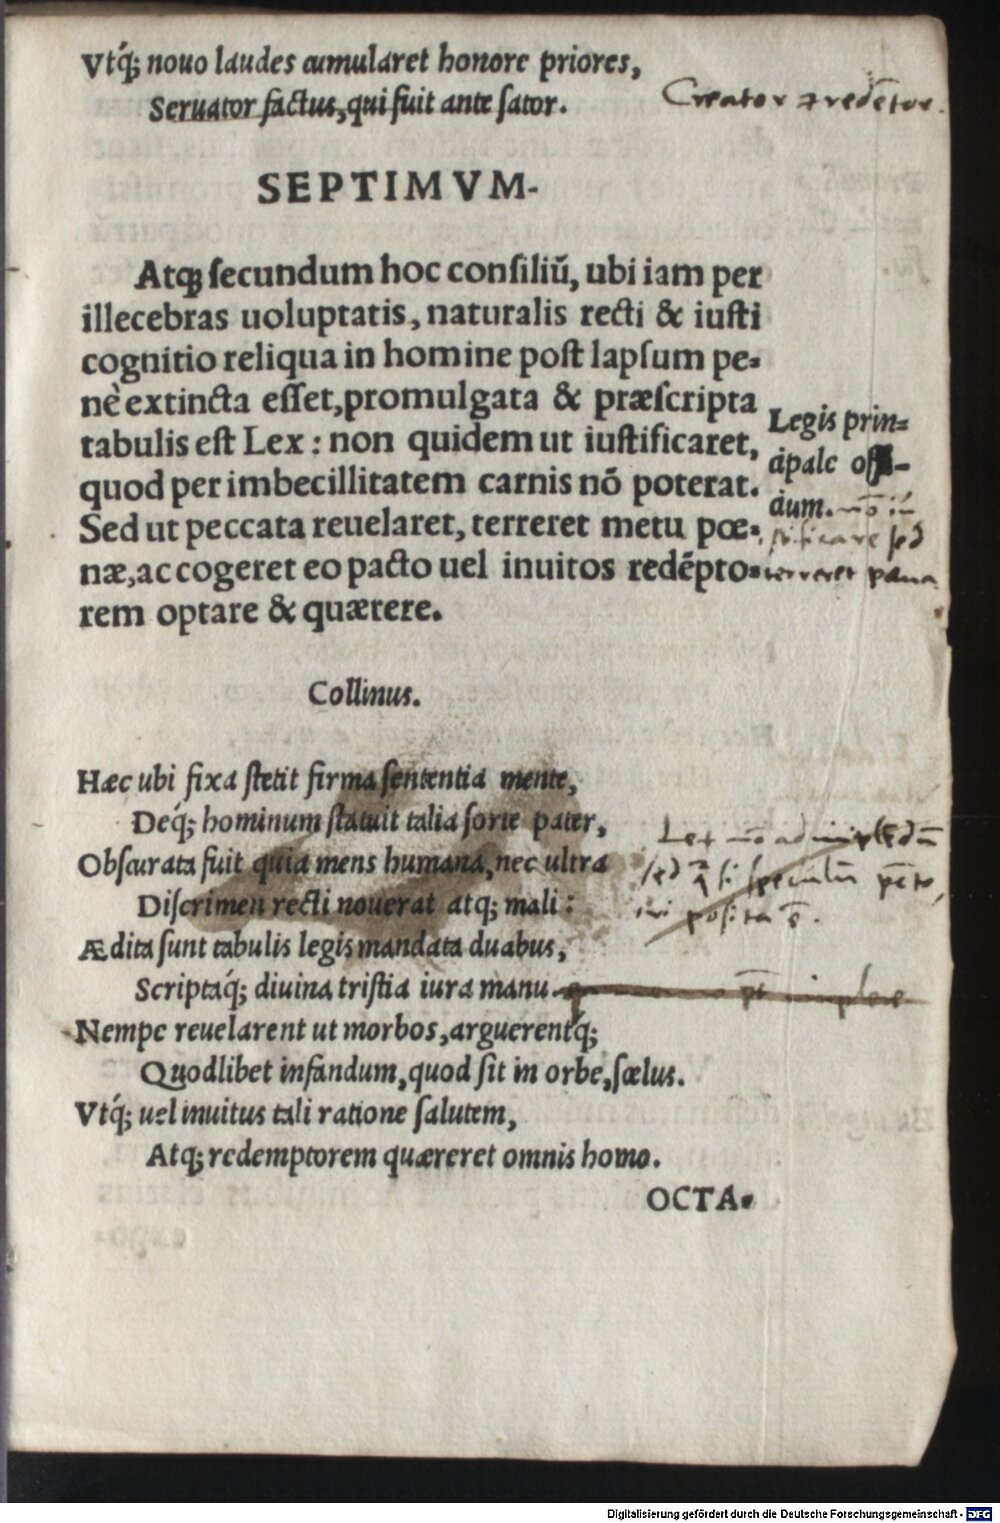 Vtq́; nouo laudes cumularet honore priores,
Seruator factus, qui fuit ante sator.
Creator & redẽtor.
SEPTIMVM.
Atq; secundum hoc consiliũ, ubi iam per
illecebras uoluptatis, naturalis recti & iusti
cognitio reliqua in homine post lapsum pe=
nè extincta esset, promulgata & præscripta
tabulis est Lex: non quidem ut iustificaret,
quod per imbecillitatem carnis nõ poterat.
Sed ut peccata reuelaret, terreret metu pœ=
næ, ac cogeret eo pacto uel inuitos redẽpto=
rem optare & quærere.
Legis prin=
cipale offi-
cium. nõ iu
stificare sed
terreret
Collinus.
Hæc ubi fixa stetit firma sententia mente,
Deq́; hominum statuit talia sorte pater,
Obscurata fuit quia mens humana, nec ultra
Discrimen recti nouerat atq; mali:
Ædita sunt tabulis legis mandata duabus,
Scriptaq́; diuina tristia iura manu.
Nempe reuelarent ut morbos, arguerentq́;
Quodlibet infandum, quod sit in orbe, scelus.
Vtq́; uel inuitus tali ratione salutem,
Atq; redemptorem quæreret omnis homo.
Lex nõ
sed speculũ
posita ẽ.
OCTA=
Digitalisierung gefördert durch die Deutsche Forschungsgemeinschaft - DFG